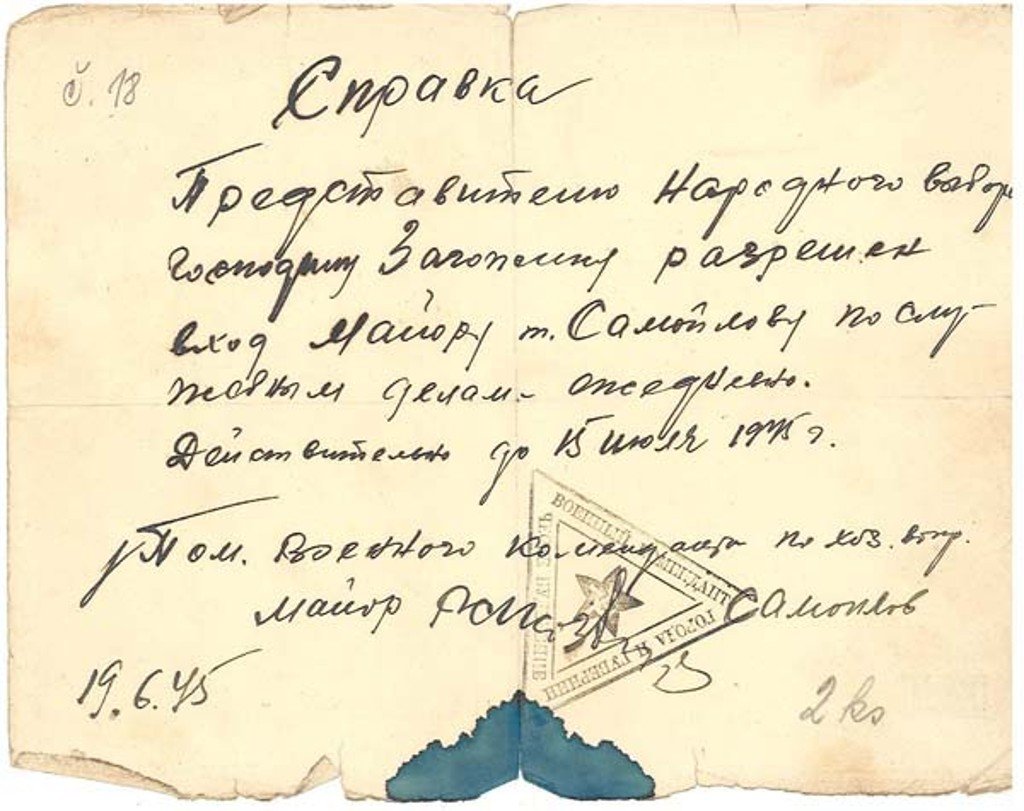 č. 18
Справка
Представителю Народного выбора
господину разрешен
вход Майору т. Самойлову по слу-
жебным делам - ежедневно.
Действительно до 15 июля 1945 г.
Пом. Военного Коменданта по хоз. вопр.
майор Самойлов
ВОЕННЫЙ КОМЕНДАНТ
ГОРОДА И ГУБЕРНИИ
19.6.45
2 ks